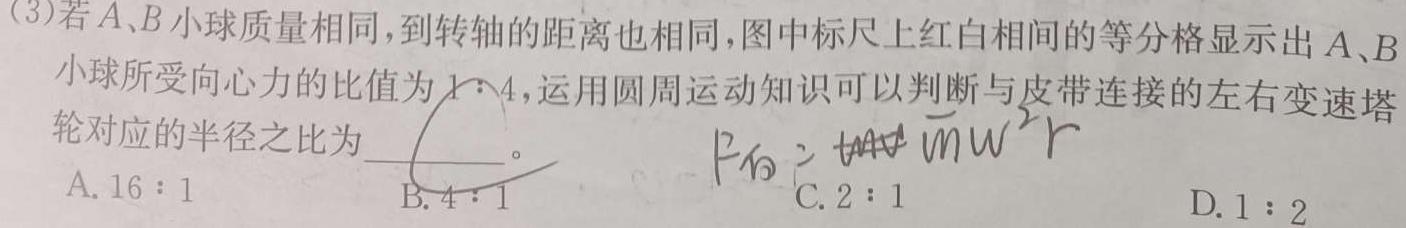 (3)若A、B小球质量相同,到转轴的距离也相同,图中标尺上红白相间的等分格显示出A、B
小球所受向心力的比值为1∶4,运用圆周运动知识可以判断与皮带连接的左右变速塔
轮对应的半径之比为________。
F向= mw²r
A. 16∶1 B. 4∶1 C. 2∶1 D. 1∶2